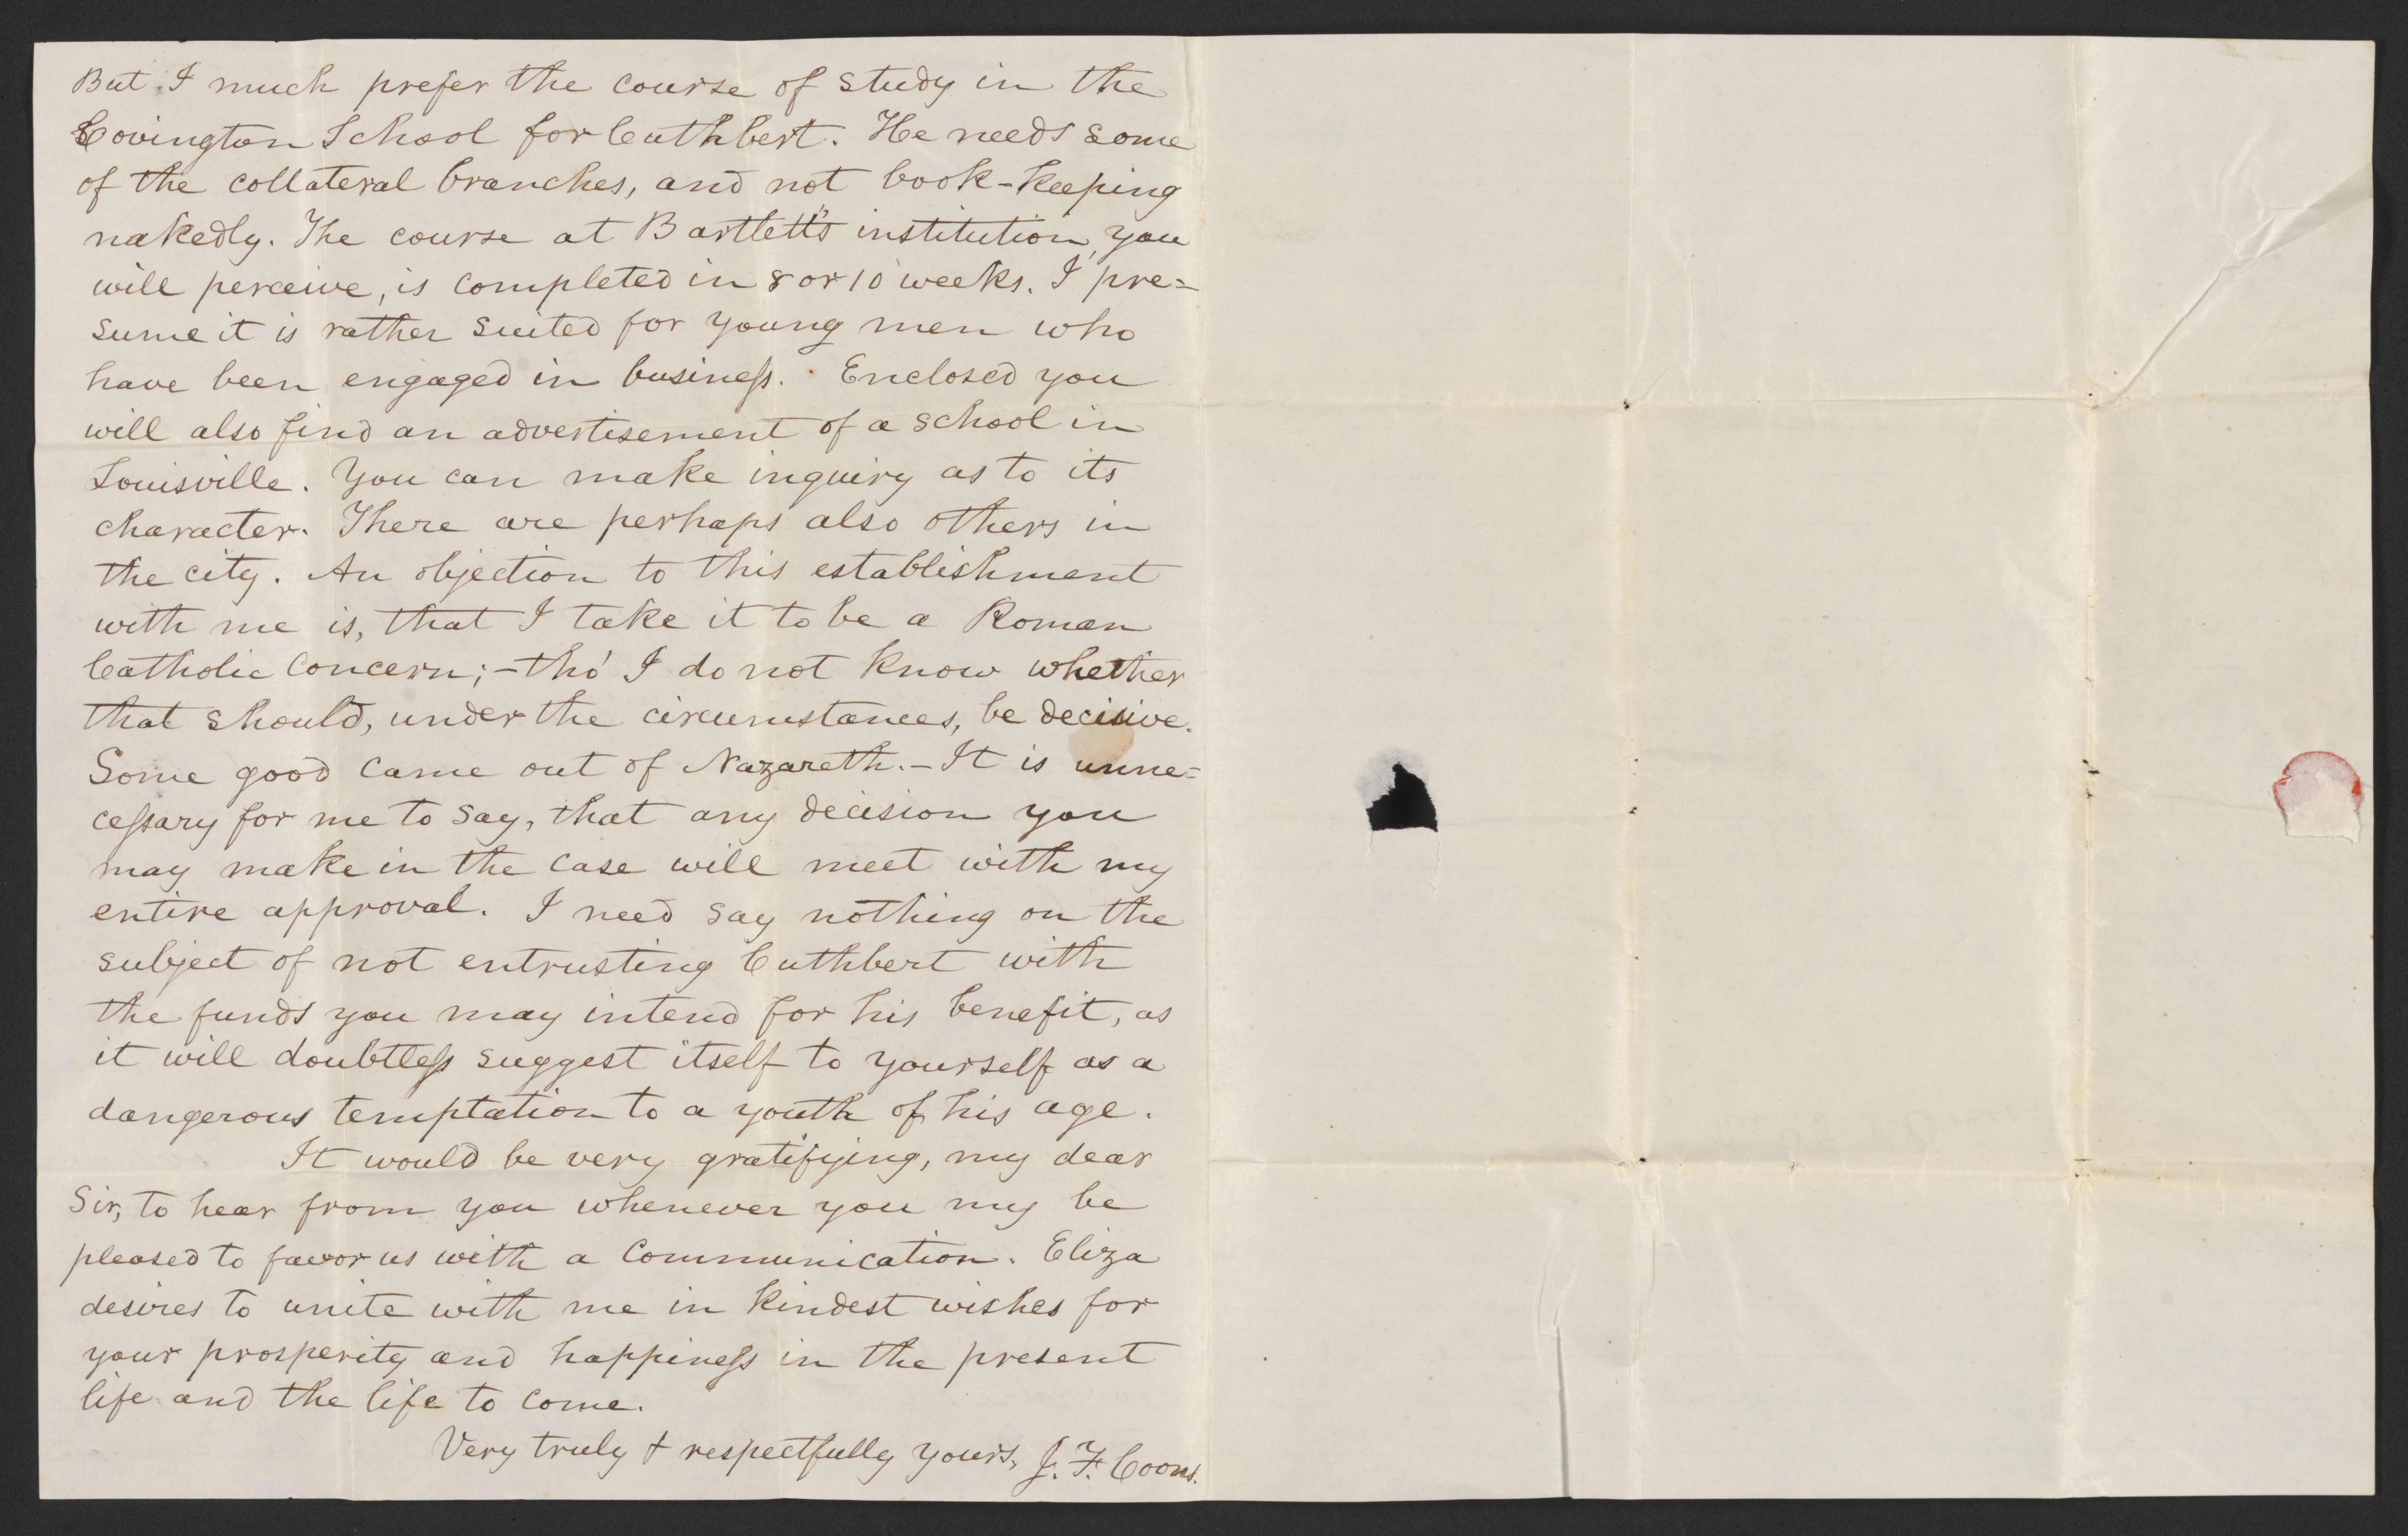 But I much prefer the course of study in the
Covington School for Cuthbert. He needs some
of the collateral branches, and not book-keeping
nakedly. The course at Bartlett's institution, you
will perceive, is completed in 8 or 10 weeks. I pre=
sume it is rather suited for young men who
have been engaged in business. Enclosed you
will also find an advertisement of a school in
Louisville. You can make inquiry as to its
character. There are perhaps also others in
the city. An objection to this establishment
with me is, that I take it to be a Roman
Catholic concern; - tho' I do not know whether
that should, under the circumstances, be decisive.
Some good came out of Nazareth. - It is unne=
cessary for me to say, that any decision you
may make in the case will meet with my
entire approval. I need say nothing on the
subject of not entrusting Cuthbert with
the funds you may intend for his benefit, as
it will doubtless suggest itself to yourself as a
dangerous temptation to a youth of his age.
It would be very gratifying, my dear
Sir, to hear from you whenever you my be
pleased to favor us with a communication. Eliza
desires to unite with me in kindest wishes for
your prosperity and happiness in the present
life and the life to come.
Very truly & respectfully yours, J. F. Coons.